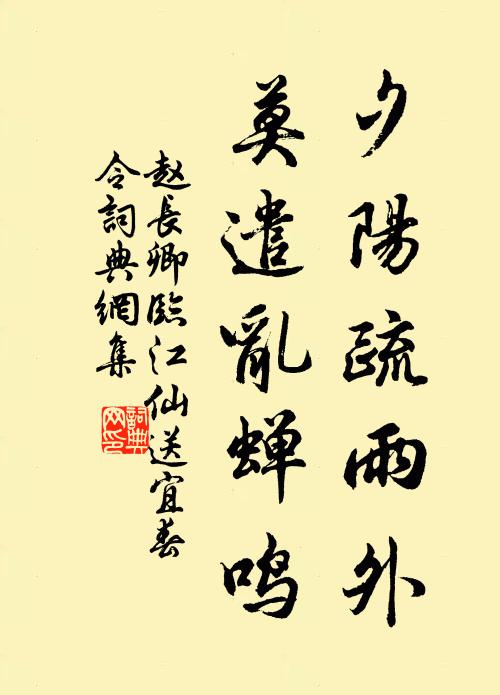 夕陽疏雨外
莫遣亂蝉鸣
赵長卿臨江仙送宜春
令詞典網集
詞典
网印